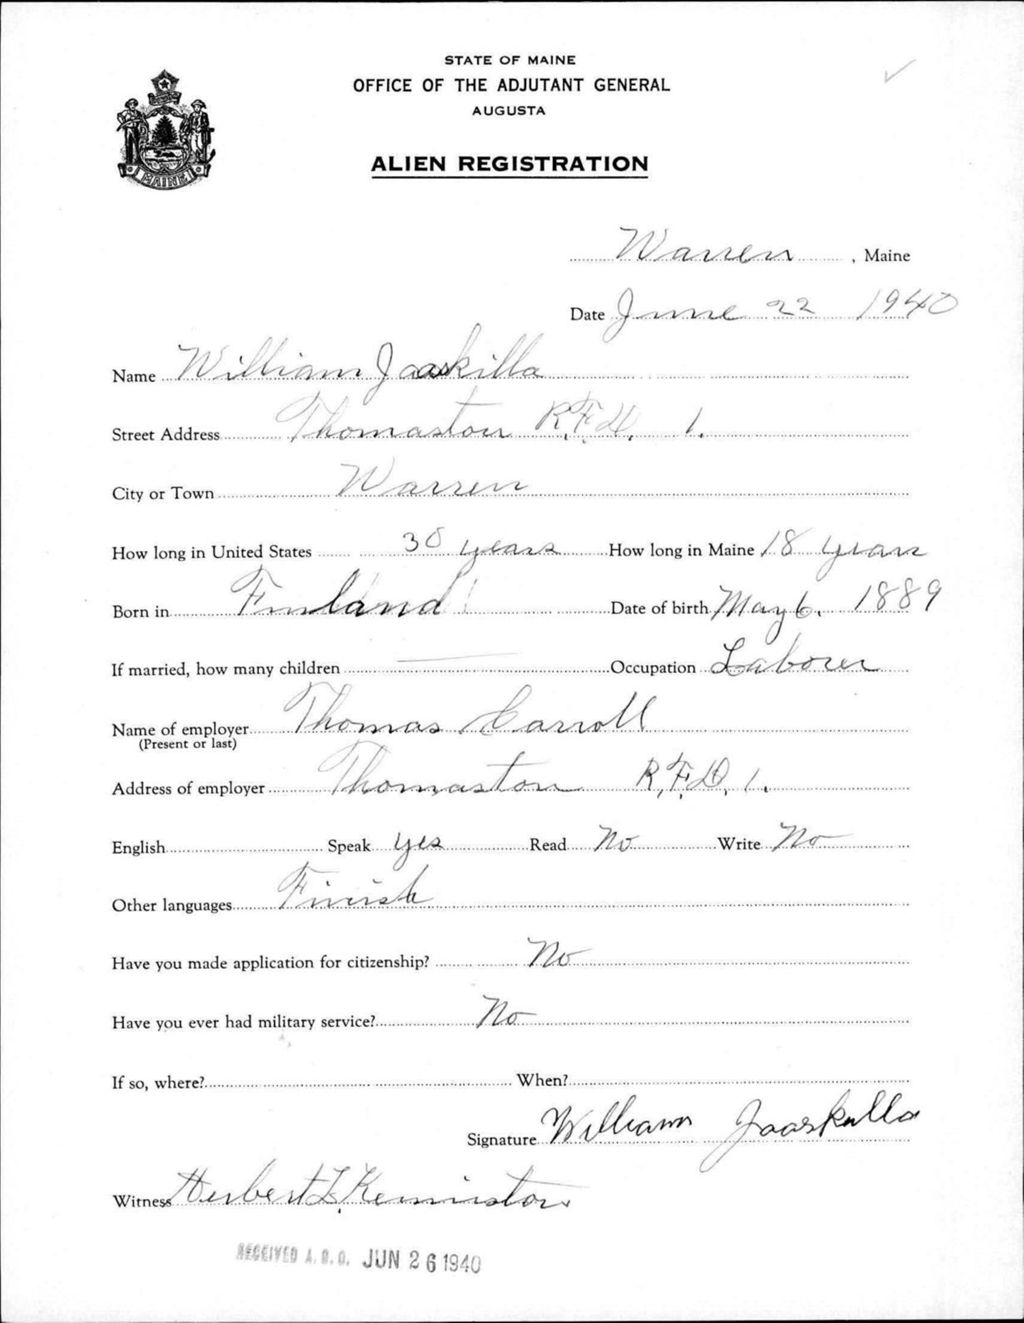 STATE OF MAINE
OFFICE OF THE ADJUTANT GENERAL
AUGUSTA
ALIEN REGISTRATION
MAINE
Warren, Maine
Date June 22 1940
Name William Jaaskilla
Street Address Thomaston R.F.D. 1.
City or Town Warren
How long in United States 30 years How long in Maine 18 years
Born in Finland Date of birth May 6, 1889
If married, how many children — Occupation Laborer
Name of employer Thomas Carroll
(Present or last)
Address of employer Thomaston R.F.D. 1.
English Speak yes Read No Write No
Other languages Finish
Have you made application for citizenship? No
Have you ever had military service? No
If so, where? When?
Signature William Jaaskilla
Witness Herbert L. Keniston
RECEIVED A.G.O. JUN 26 1940